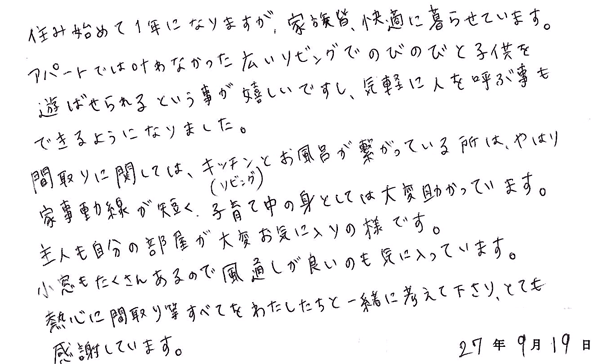 住み始めて1年になりますが、家族皆、快適に暮らせています。
アパートでは叶わなかった広いリビングでのびのびと子供を
遊ばせられるという事が嬉しいですし、気軽に人を呼ぶ事も
できるようになりました。
間取りに関しては、キッチンとお風呂が繋がっている所は、やはり
(リビング)
家事動線が短く、子育て中の身としては大変助かっています。
主人も自分の部屋が大変お気に入りの様です。
小窓もたくさんあるので風通しが良いのも気に入っています。
熱心に間取り等すべてをわたしたちと一緒に考えて下さり、とても
感謝しています。
27年9月19日